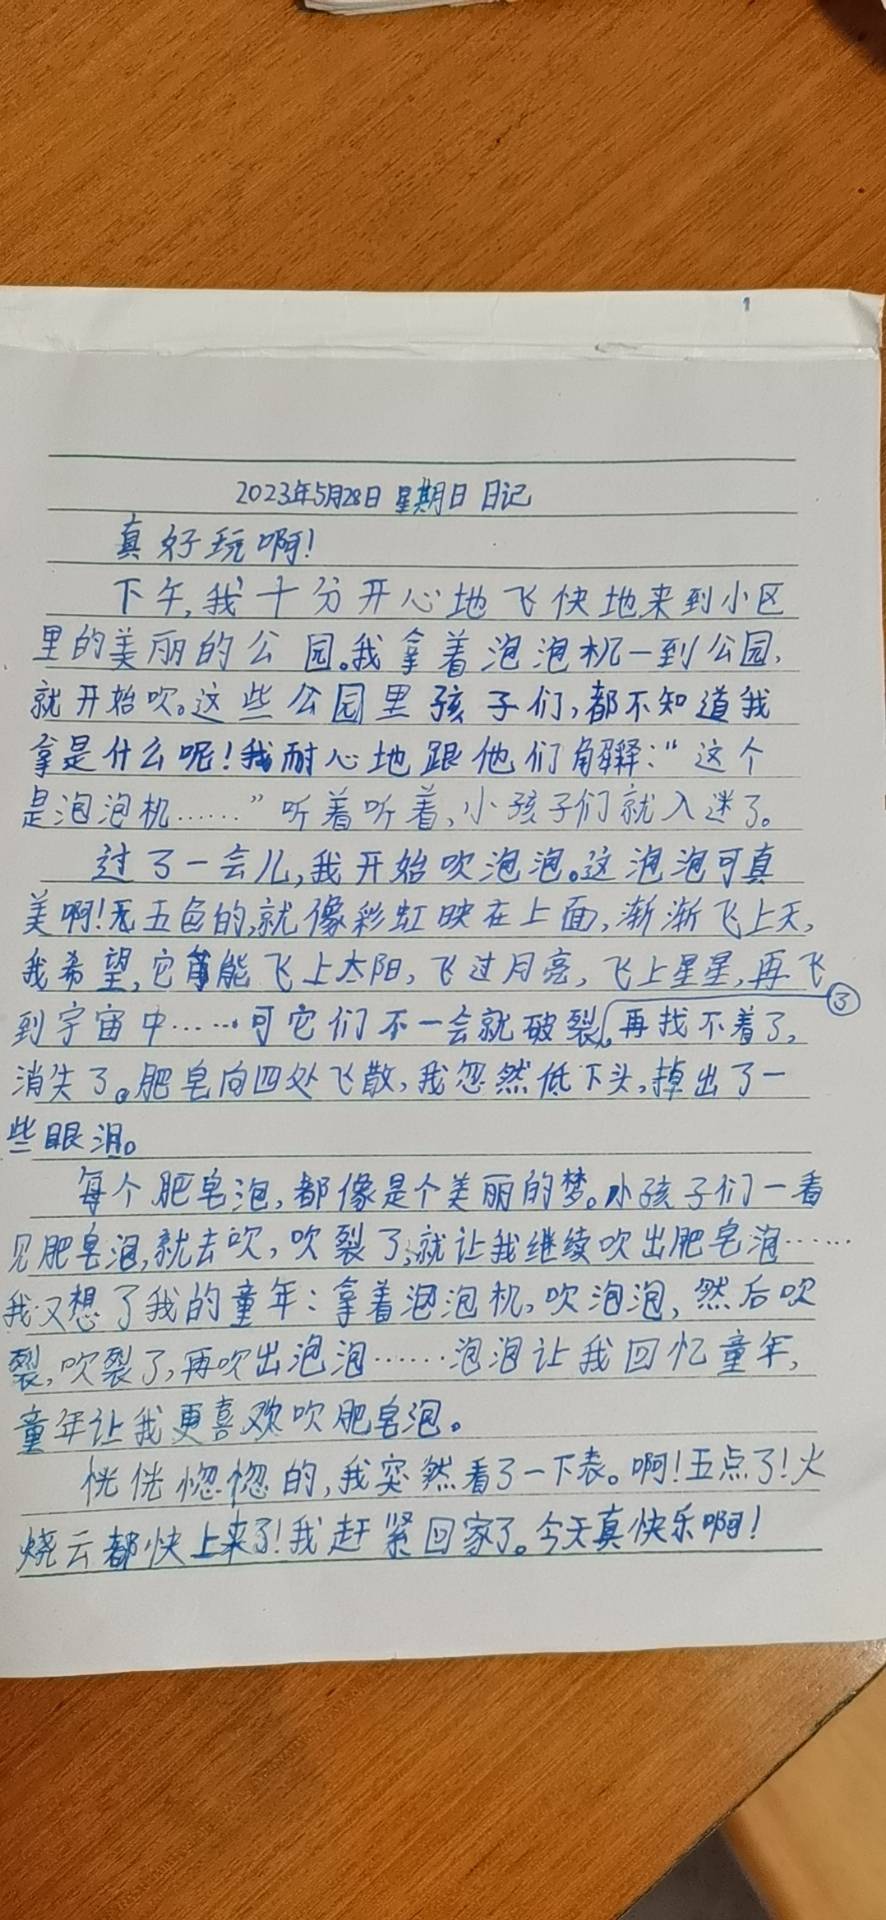 1
2023年5月28日 星期日 日记
真好玩啊!
下午,我十分开心地飞快地来到小区
里的美丽的公园。我拿着泡泡机一到公园,
就开始吹。这些公园里孩子们,都不知道我
拿是什么呢!我耐心地跟他们解释:“这个
是泡泡机……”听着听着,小孩子们就入迷了。
过了一会儿,我开始吹泡泡。这泡泡可真
美啊!五色的,就像彩虹映在上面,渐渐飞上天,
我希望,它能飞上太阳,飞过月亮,飞上星星,再飞
到宇宙中……可它们不一会就破裂,再找不着了,
③
消失了。肥皂向四处飞散,我忽然低下头,掉出了一
些眼泪。
每个肥皂泡,都像是个美丽的梦。小孩子们一看
见肥皂泡,就去吹,吹裂了,就让我继续吹出肥皂泡……
我又想了我的童年:拿着泡泡机,吹泡泡,然后吹
裂,吹裂了,再吹出泡泡……泡泡让我回忆童年,
童年让我更喜欢吹肥皂泡。
恍恍惚惚的,我突然看了一下表。啊!五点了!火
烧云都快上来了!我赶紧回家了。今天真快乐啊!